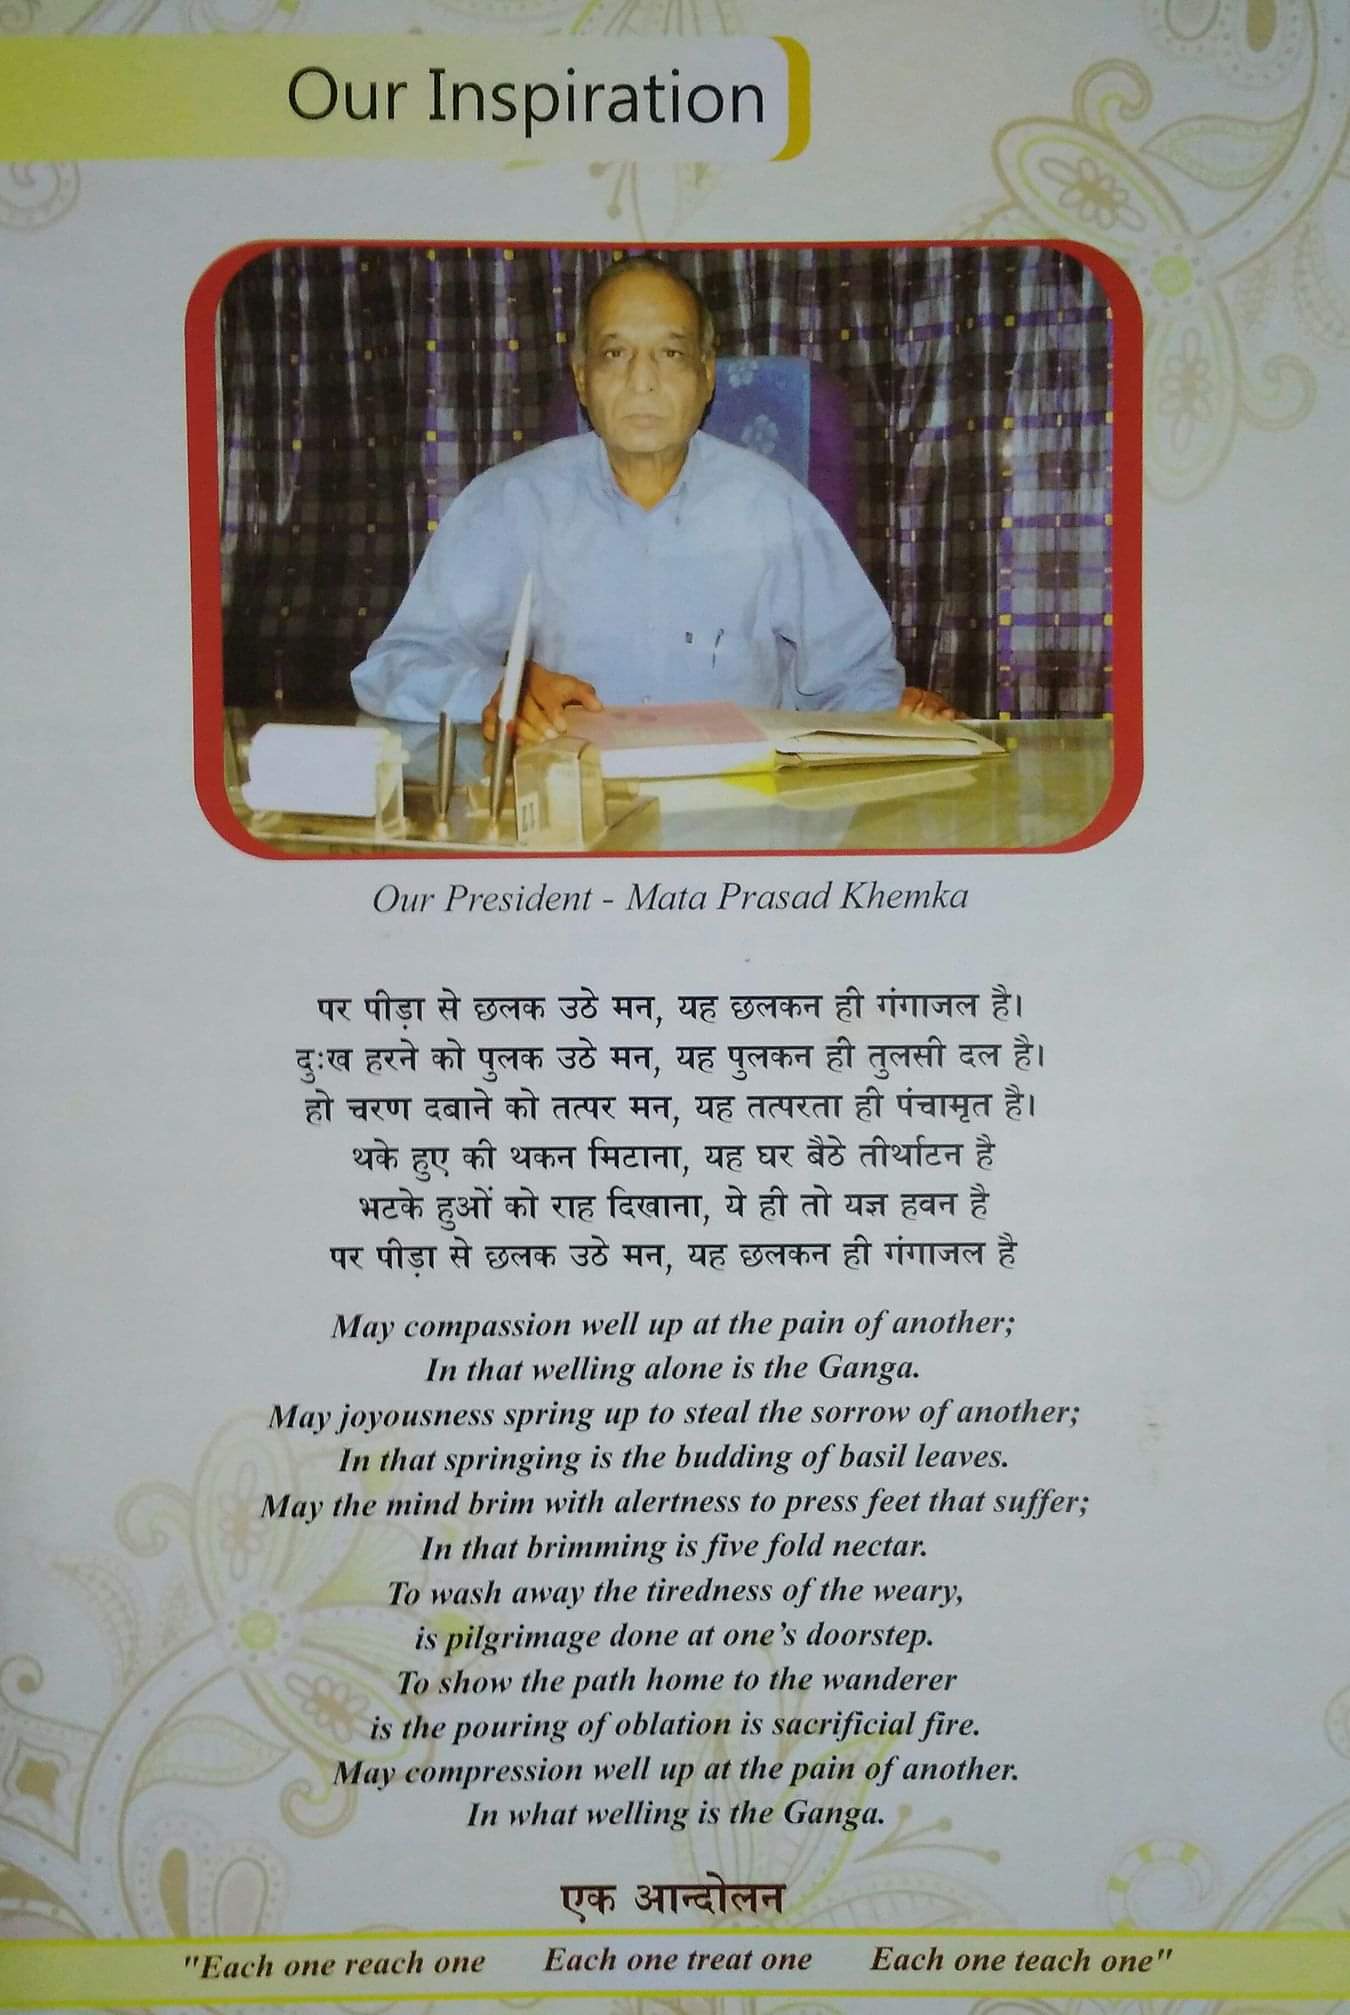 Our Inspiration
Our President - Mata Prasad Khemka
पर पीड़ा से छलक उठे मन, यह छलकन ही गंगाजल है।
दुःख हरने को पुलक उठे मन, यह पुलकन ही तुलसी दल है।
हो चरण दबाने को तत्पर मन, यह तत्परता ही पंचामृत है।
थके हुए की थकन मिटाना, यह घर बैठे तीर्थाटन है
भटके हुओं को राह दिखाना, ये ही तो यज्ञ हवन है
पर पीड़ा से छलक उठे मन, यह छलकन ही गंगाजल है
May compassion well up at the pain of another;
In that welling alone is the Ganga.
May joyousness spring up to steal the sorrow of another;
In that springing is the budding of basil leaves.
May the mind brim with alertness to press feet that suffer;
In that brimming is five fold nectar.
To wash away the tiredness of the weary,
is pilgrimage done at one's doorstep.
To show the path home to the wanderer
is the pouring of oblation is sacrificial fire.
May compression well up at the pain of another.
In what welling is the Ganga.
एक आन्दोलन
"Each one reach one Each one treat one Each one teach one"